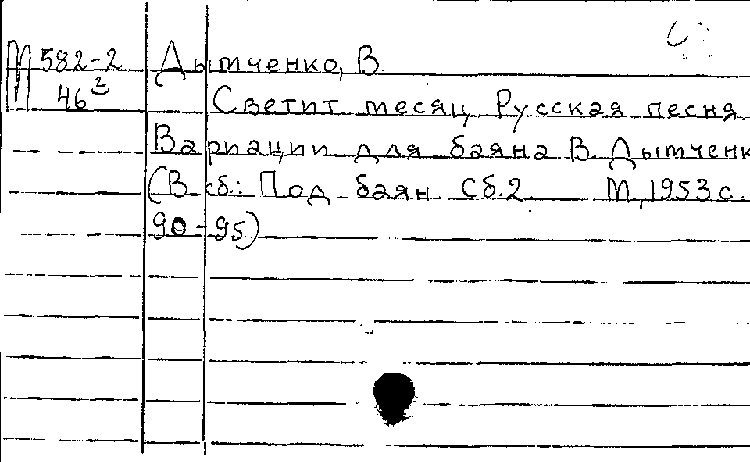 М 582-2 Дымченко, В.
46³ Светит месяц. Русская песня
Вариации для баяна В. Дымченк
(В сб.: Под баян Сб.2 М., 1953 с.
90-95)